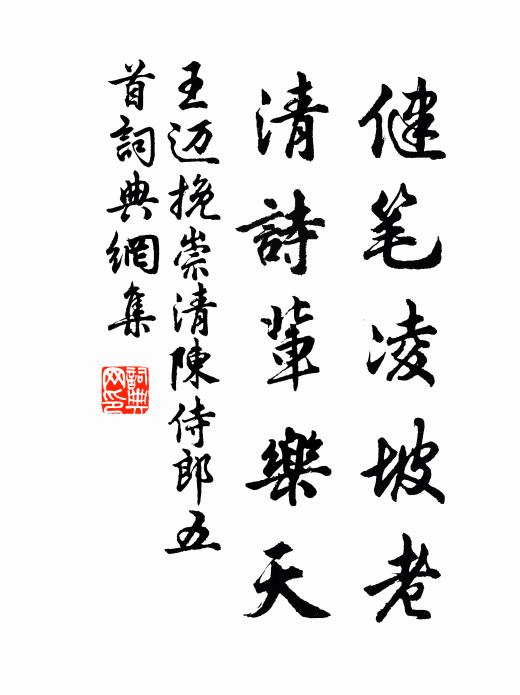 健笔凌坡老
清詩輩樂天
王迈挽崇清陳侍郎五
首詞典網集
詞典
网印